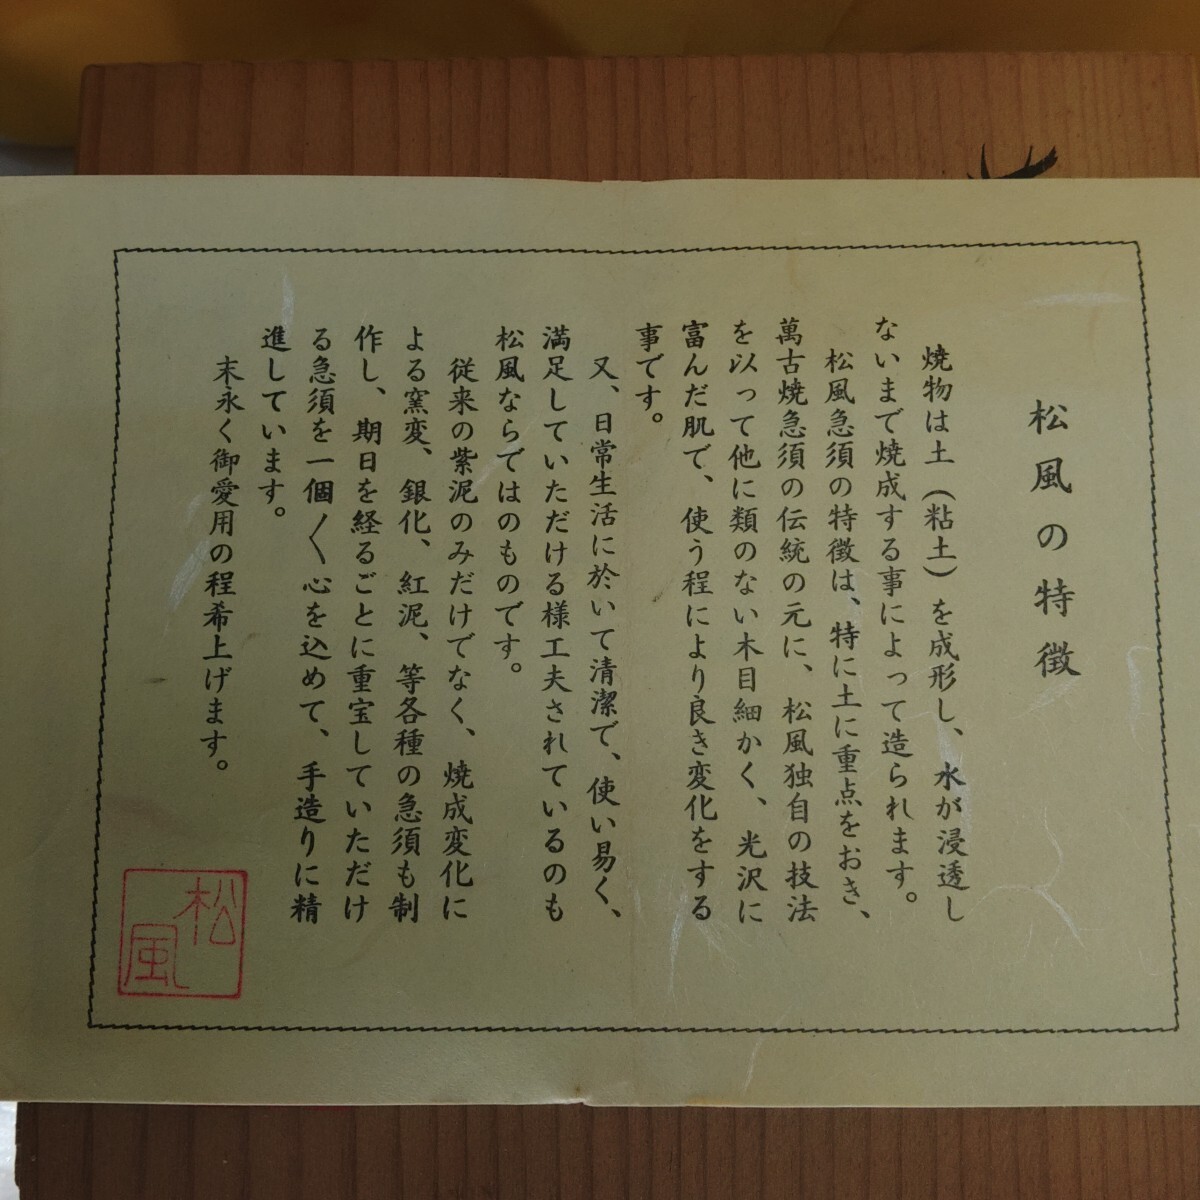 松風の特徴
焼物は土（粘土）を成形し、水が浸透し
ないまで焼成する事によって造られます。
松風急須の特徴は、特に土に重点をおき、
萬古焼急須の伝統の元に、松風独自の技法
を以って他に類のない木目細かく、光沢に
富んだ肌で、使う程により良き変化をする
事です。
又、日常生活に於いて清潔で、使い易く、
満足していただける様工夫されているのも
松風ならではのものです。
従来の紫泥のみだけでなく、焼成変化に
よる窯変、銀化、紅泥、等各種の急須も制
作し、期日を経るごとに重宝していただけ
る急須を一個〱心を込めて、手造りに精
進しています。
末永く御愛用の程希上げます。
松風